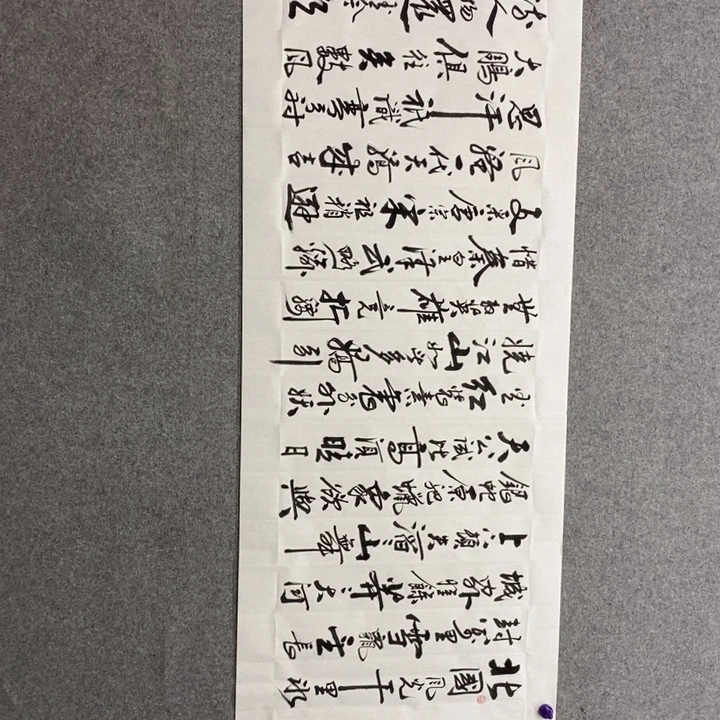 北國風光千里冰
封萬里雪飄望長
城內外惟餘莽莽大河
上下頓失滔滔山舞
銀蛇原馳蠟象欲與
天公試比高須晴日
看紅裝素裹分外妖
嬈江山如此多嬌引
無數英雄競折腰
惜秦皇漢武略輸
文采唐宗宋祖稍遜
風騷一代天驕成吉
思汗祇識彎弓射
大鵰俱往矣數風
流人物還看今